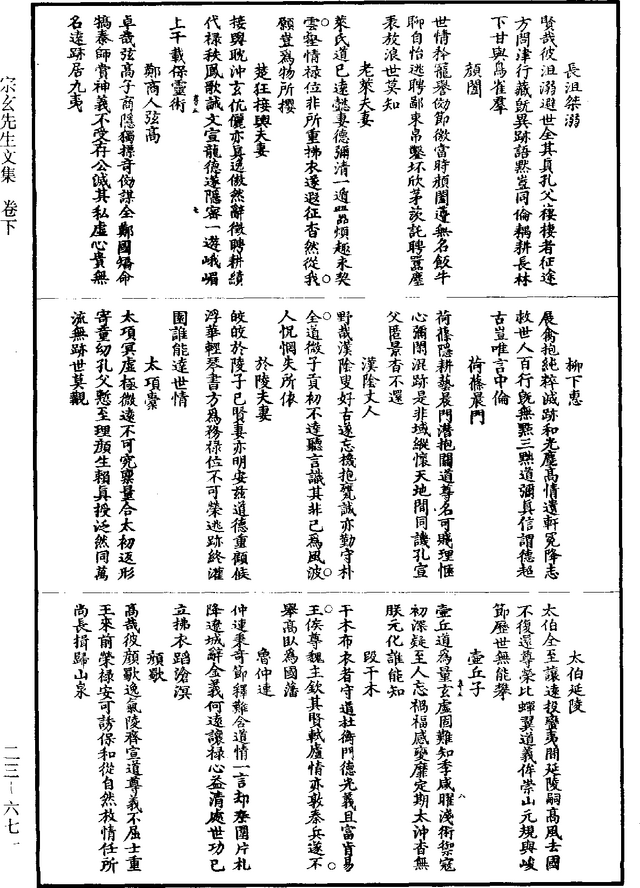 長沮桀溺
賢哉彼沮溺避世全其真孔父棲棲者征途
方問津行藏既異跡語黙豈同倫耦耕長林
下甘與鳥雀羣
顔闔
世情矜寵譽効節徼當時顔闔遵無名飯牛
聊自怡逃聘鄙束帛鑿坏欣茅茨託聘囂塵
表放浪世莫知
老萊夫妻
萊氏道已遠懿妻德彌清一遁囂煩趣永契
雲壑情祿位非所重拂衣遂遐征杳然從我
願豈為物所攖
楚狂接輿夫妻
接輿耽沖玄伉儷亦真逸傲然辭徵聘耕績
代祿秩鳳歌誡文宣龍德遂隱密一遊峨嵋
上千載保靈術
鄭商人弦高
卓哉弦高子商隱獨摽奇効謀全鄭國矯命
犒秦師賞神義不受存公滅其私虛心貴無
名遠跡居九夷
柳下惠
展禽抱純粹滅跡和光塵高情遺軒冕降志
救世人百行既無點三黜道彌真信謂德超
古豈唯言中倫
荷蓧晨門
荷蓧隱耕藝晨門潛抱關道尊名可賤理愜
心彌閑混跡是非域縱懷天地間同譏孔宣
父匿景杳不還
漢陰丈人
野哉漢陰叟好古遂忘機抱甕誠亦勤守朴
全道微子貢初不達聽言識其非已為風波
人怳惘失所依
於陵夫妻
皎皎於陵子已賢妻亦明安茲道德重顧彼
浮華輕琴書方為務祿位不可榮逃跡終灌
園誰能達世情
太項橐
太項冥虛極微遠不可究稟量合太初返形
寄童幼孔父慙至理顔生賴真授泛然同萬
流無跡世莫覿
太伯延陵
太伯全至讓遠投蠻夷間延陵嗣高風去國
不復還尊榮比蟬翼道義侔崇山元規與峻
節歷世無能攀
壺丘子
壺丘道為量玄虛固難知季咸曜淺術禦寇
初深疑至人忘禍福感變靡定期太沖杳無
朕元化誰能知
段干木
干木布衣者守道杜衡門德光義且富肯易
王侯尊魏主欽其賢軾廬情亦敦秦兵遂不
舉高臥為國藩
魯仲連
仲連秉奇節釋難含道情一言却秦圍片札
降遼城辭金義何遠讓祿心益清處世功已
立拂衣蹈滄溟
顔歜
高哉彼顔歜逸氣陵齊宣道尊義不屈士重
王來前榮祿安可誘保和從自然放情任所
尚長揖歸山泉
宗玄先生文集 卷下
二三－六七一